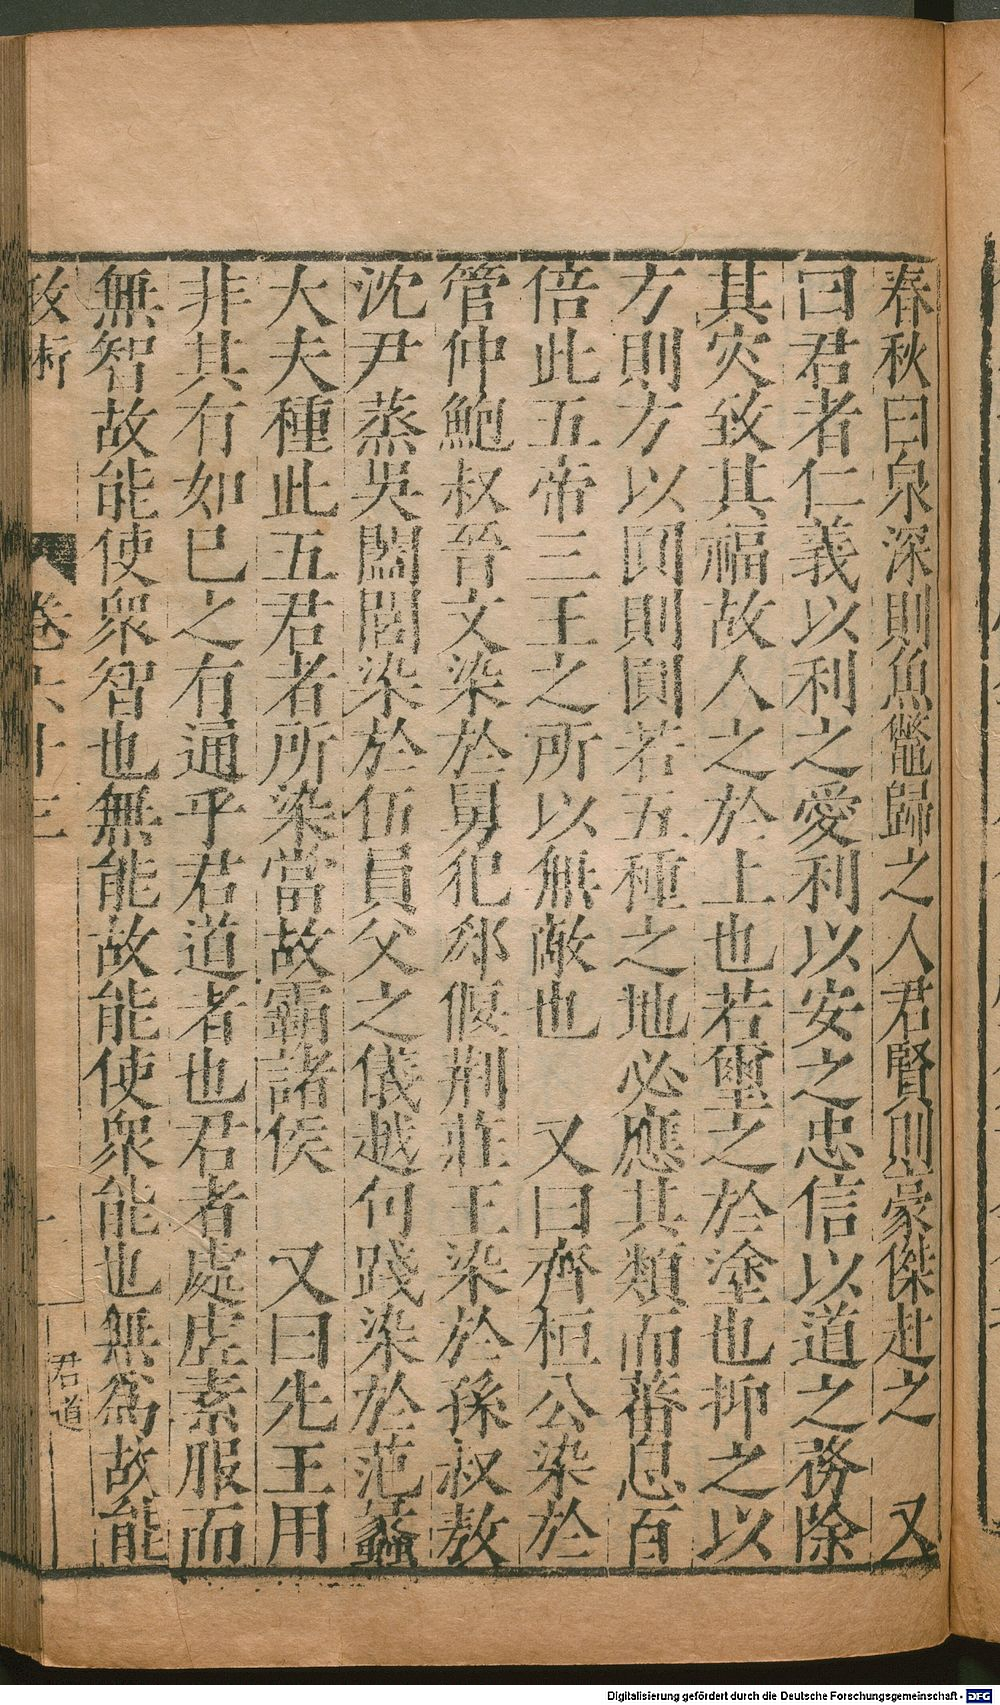 春秋曰泉深則魚鼈歸之人君賢則豪傑赴之　又
曰君者仁義以利之愛利以安之忠信以道之務除
其灾致其福故人之於上也若璽之於塗也抑之以
方則方以圓則圓若五種之地必應其類而蕃息百
倍此五帝三王之所以無敵也　又曰齊桓公染於
管仲鮑叔晉文染於舅犯郄偃荆莊王染於孫叔敖
沈尹蒸吳闔閭染於伍員父之儀越句踐染於范蠡
大夫種此五君者所染當故霸諸侯　又曰先王用
非其有如已之有通乎君道者也君者處虛素服而
無智故能使衆智也無能故能使衆能也無爲故能
政術
卷六十三
君道
Digitalisierung gefördert durch die Deutsche Forschungsgemeinschaft - DFG